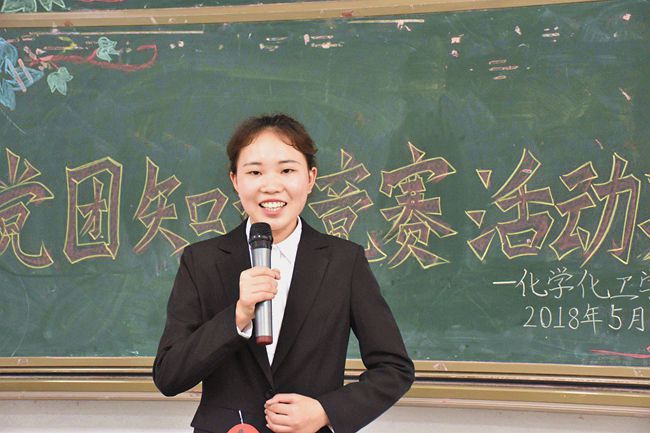 党团知识竞赛活动
—化学化工学
2018年5月